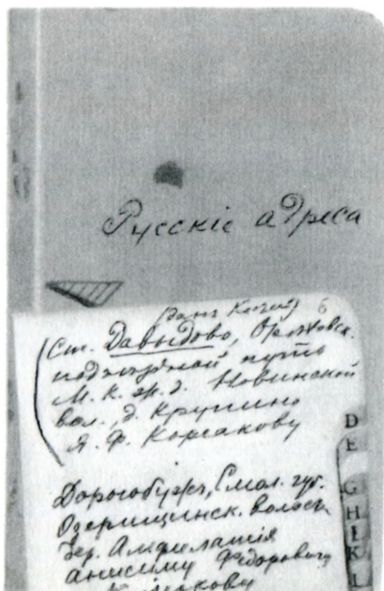 Русскіе адреса
6
Ст. Давыдово, Орѣховск.
подъѣздной путь
М. К. ж. д. Новинской
вол., д. Крупино
Я. Ф. Корсакову
Дорогобужъ, Смол. губ.
Озерищинск. волость
дер. Амфилатія
Анисиму Федоровичу
D
E
G
H
I
K
L